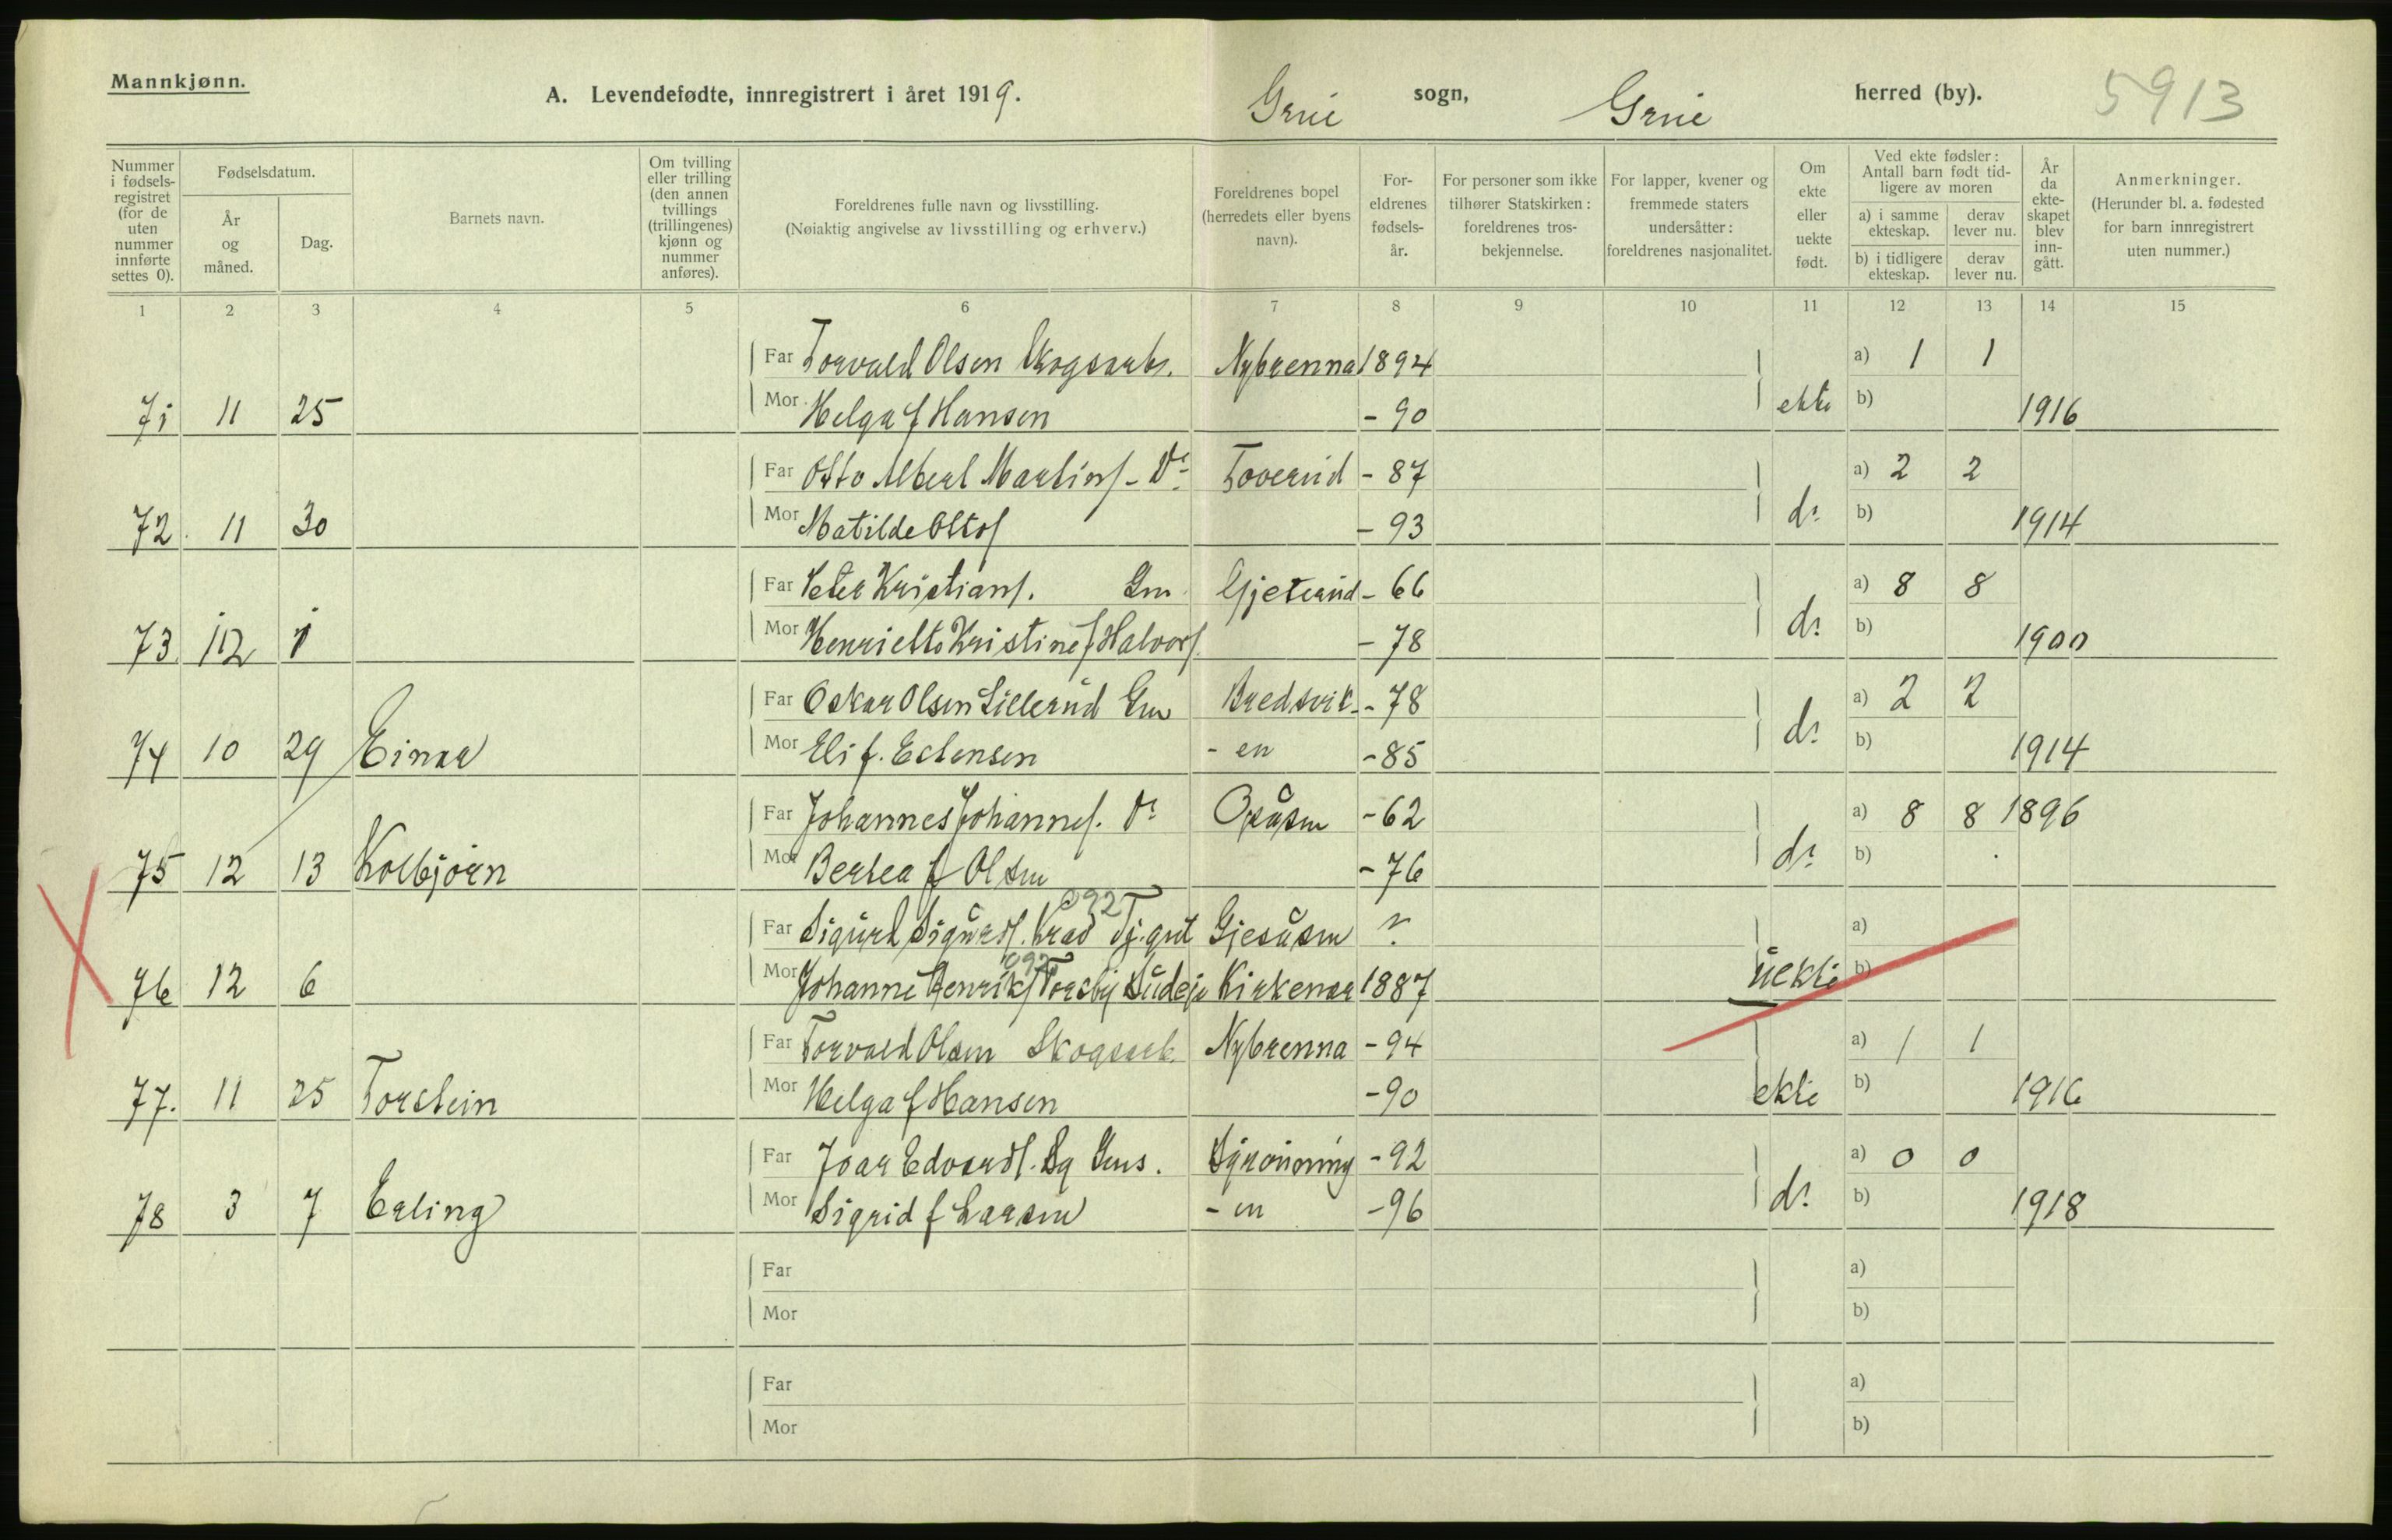 Mannkjønn.
A. Levendefødte, innregistrert i året 1919. Grue sogn, Grue herred (by). 5913
Nummer i fødsels-registret (for de uten nummer innførte settes 0).
Fødselsdatum.
År og måned.
Dag.
Barnets navn.
Om tvilling eller trilling (den annen tvillings (trillingenes) kjønn og nummer anføres).
Foreldrenes fulle navn og livsstilling.
(Nøiaktig angivelse av livsstilling og erhverv.)
Foreldrenes bopel (herredets eller byens navn).
For-eldrenes fødsels-år.
For personer som ikke tilhører Statskirken: foreldrenes tros-bekjennelse.
For lapper, kvener og fremmede staters undersåtter: foreldrenes nasjonalitet.
Om ekte eller uekte født.
Ved ekte fødsler: Antall barn født tid-ligere av moren
a) i samme ekteskap.
derav lever nu.
b) i tidligere ekteskap.
derav lever nu.
År da ekte-skapet blev inn-gått.
Anmerkninger.
(Herunder bl. a. fødested for barn innregistrert uten nummer.)
1 2 3 4 5 6 7 8 9 10 11 12 13 14 15
Far Torvald Olsen Skogsarb. Nybrenna 1894 a) 1 1
71 11 25 Mor Helga f Hansen - 90 ekte b) 1916
Far Otto Albert Martins. - Do Toverud - 87 a) 2 2
72. 11 30 Mor Matilde Ottos. - 93 do b) 1914
Far Peter Kristians. Gm Gjeterud - 66 a) 8 8
73. 12 1 Mor Henriette Kristine f Halvors. - 78 do b) 1900
Far Oskar Olsen Lillerud Gm Bredsvik - 78 a) 2 2
74 10 29 Einar Mor Eli f. Estensen - en - 85 do b) 1914
Far Johannes Johannes. Do Opåsen - 62 a) 8 8 1896
75 12 13 Kolbjørn Mor Bertea f Olsen - 76 do b)
092
Far Sigurd Sigurds. Tj.gut Gjesåsen ? a)
092
76 12 6 Mor Johanne Henriks. Torsby Kirkenær 1887 uekte b)
Far Torvald Olsen Skogsarb. Nybrenna - 94 a) 1 1
77. 11 25 Torstein Mor Helga f Hansen - 90 ekte b) 1916
Far Joar Edvards. Gms. - 92 a) 0 0
78 3 7 Erling Mor Sigrid f Larsen - en - 96 do b) 1918
Far a)
Mor b)
Far a)
Mor b)